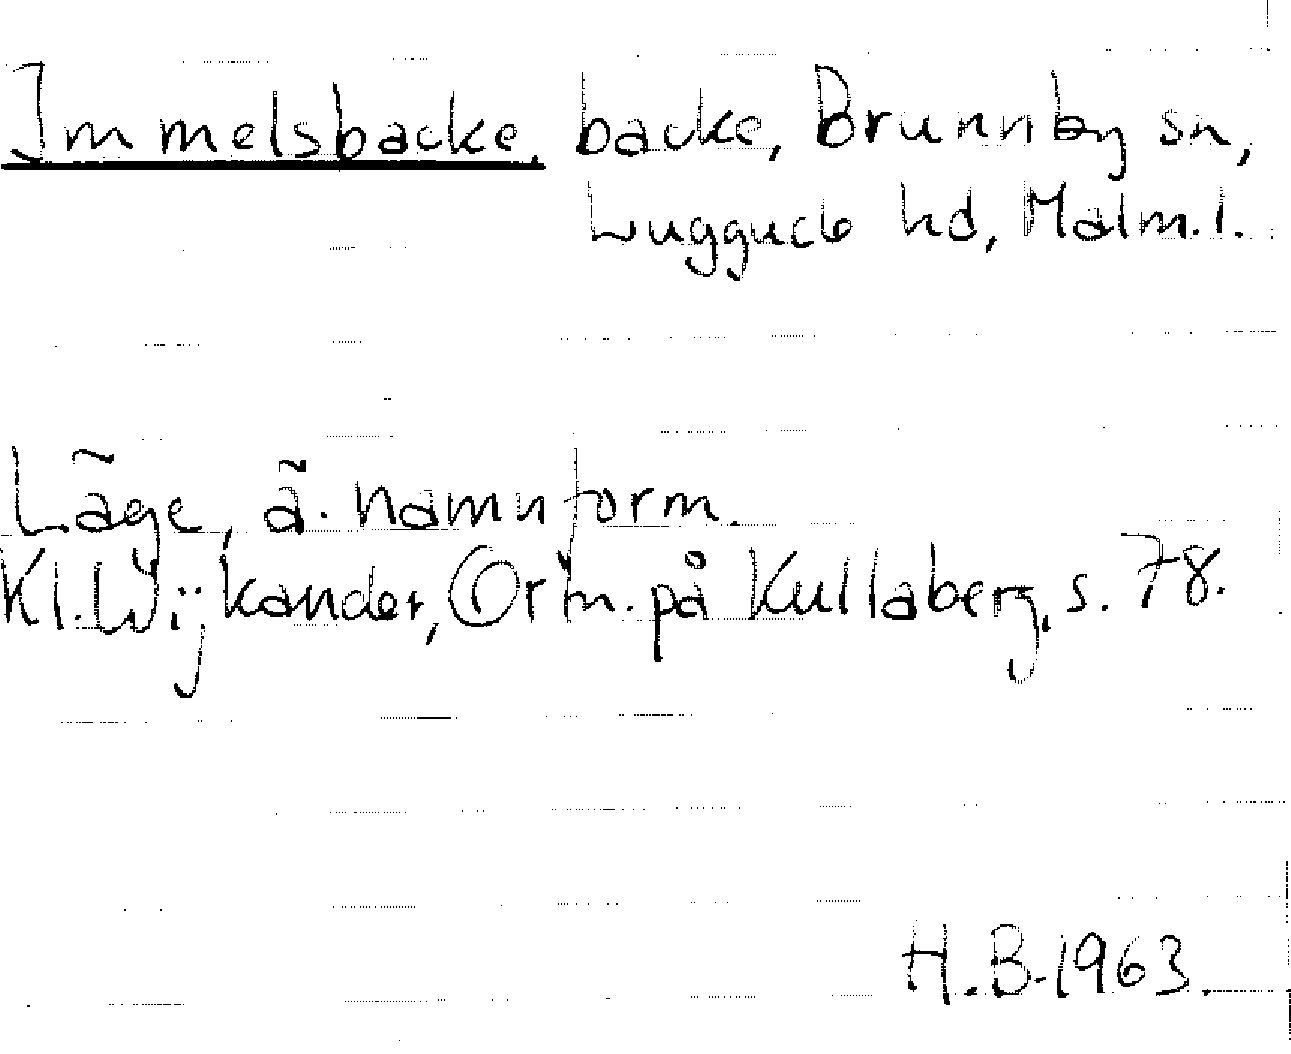 Immelsbacke, backe, Brunnby sn,
Luggude hd, Malm.l.
Läge, ä. namnform.
Kl. Wijkander, Ortn. på Kullaberg, s. 78.
H.B. 1963.